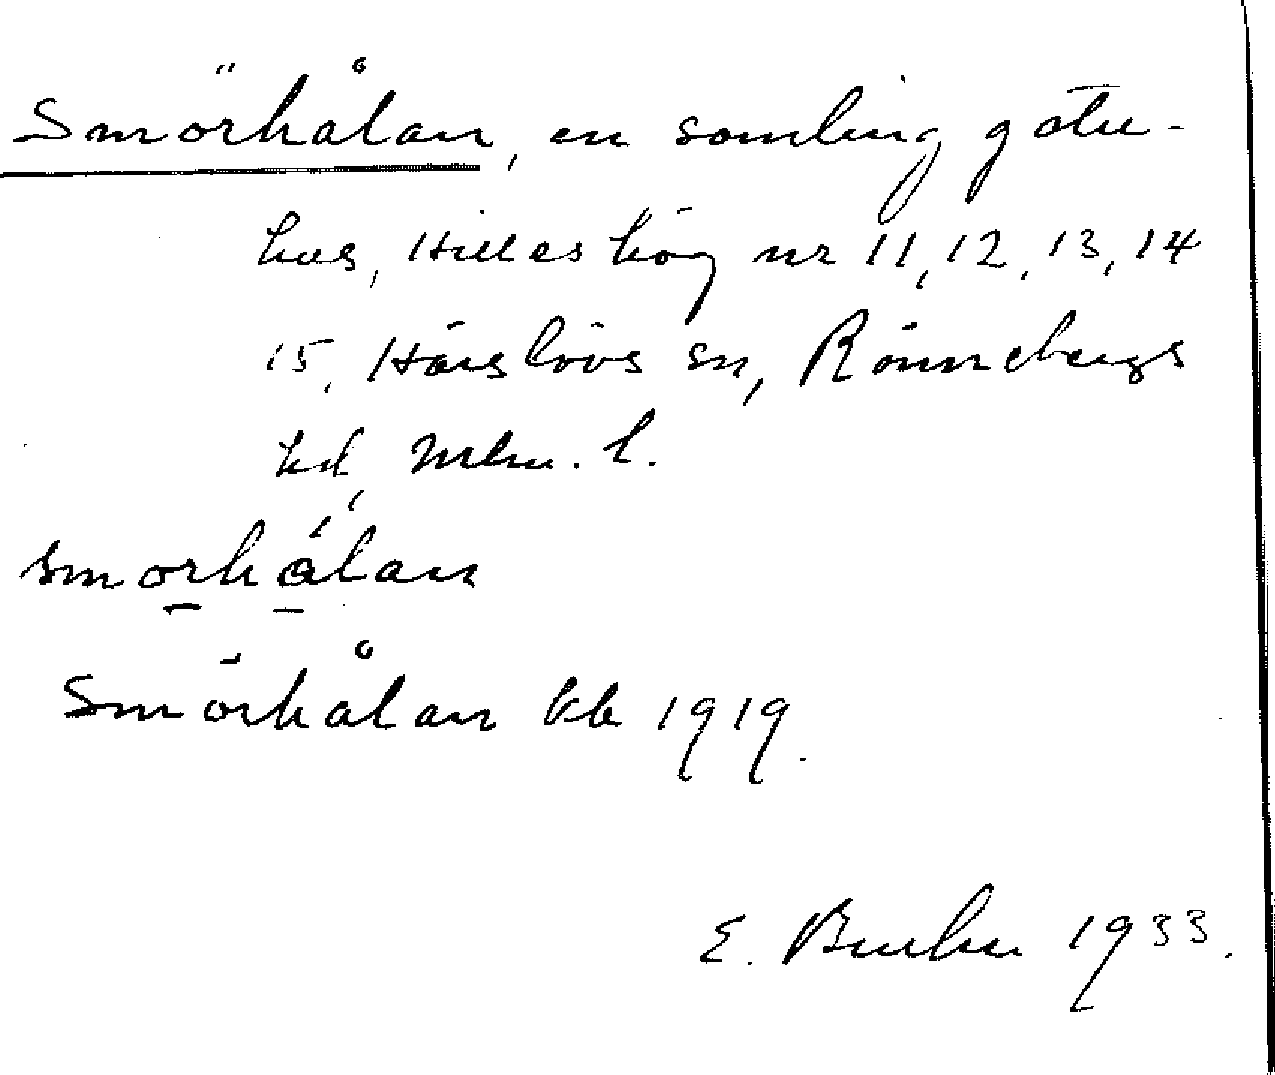 Smörhålan, en samling gatu-
hus, Hilleshög nr 11, 12, 13, 14
15, Härslövs sn, Rönnebergs
hd, Mlm. l.
smörhålan
Smörhålan kb 1919.
E. 1933.